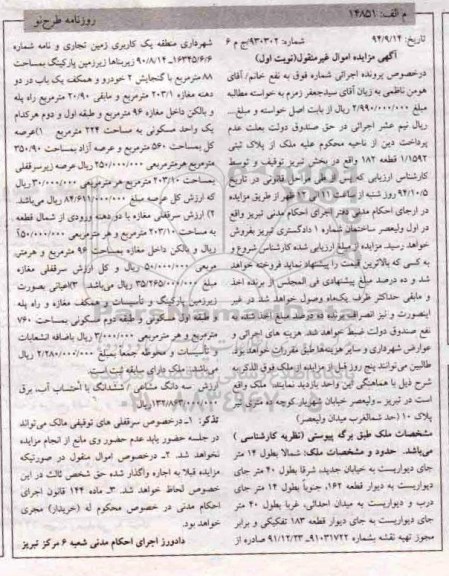 م الف: ۱۴۸۵۱
روزنامه طرح‌نو
تاریخ: ۹۴/۹/۱۴ شماره: ۹۳۰۳۰۲/ج م ۶
آگهی مزایده اموال غیرمنقول(نوبت اول)
درخصوص پرونده اجرائی شماره فوق به نفع خانم/ آقای
هومن ناظمی به زیان آقای سیدجعفر زمرم به خواسته مطالبه
مبلغ ۲/۹۹۰/۰۰۰/۰۰۰ ریال از بابت اصل خواسته و مبلغ...
ریال نیم عشر اجرائی در حق صندوق دولت بعلت عدم
پرداخت دین از ناحیه محکوم علیه ملک از پلاک ثبتی
۱/۱۵۹۲ قطعه ۱۸۲ واقع در بخش تبریز توقیف و توسط
کارشناس ارزیابی که پس از طی مراحل قانونی در تاریخ
۹۴/۱۰/۵ روز شنبه از ساعت ۱۱ الی ۱۲ ظهر از طریق مزایده
در اجرای احکام مدنی دفتر اجرای احکام مدنی تبریز واقع
در اول ولیعصر ساختمان شماره ۱ دادگستری تبریز بفروش
خواهد رسید. مزایده از مبلغ ارزیابی شده کارشناس شروع و
به کسی که بالاترین قیمت را پیشنهاد نماید فروخته خواهد
شد و ده درصد مبلغ پیشنهادی فی المجلس از برنده اخذ
و مابقی حداکثر ظرف یک‌ماه وصول خواهد شد در غیر
اینصورت و نیز انصراف برنده ده درصد مبلغ اخذ شده به
نفع صندوق دولت ضبط خواهد شد. هزینه های اجرائی و
عوارض شهرداری و سایر هزینه‌ها طبق مقررات خواهد بود.
طالبین می‌توانند پنج روز قبل از مزایده از ملک فوق الذکر به
شرح ذیل با هماهنگی این واحد بازدید نمایند: ملک واقع
است در تبریز ـ ولیعصر خیابان شهریار کوچه ده متری
پلاک ۱۰ (حد شمالغرب میدان ولیعصر)
مشخصات ملک طبق برگه پیوستی (نظریه کارشناسی )
می‌باشد. حدود و مشخصات ملک: شمالا بطول ۱۴ متر
جای دیواریست به خیابان جدید، شرقا بطول ۴۰ متر جای
دیواریست به دیوار قطعه ۱۶۲، جنوباً بطول ۱۴ متر جای
درب و دیواریست به میدان احداثی، غربا بطول ۴۰ متر
جای دیواریست به جای دیوار قطعه ۱۸۳ تفکیکی و برابر
مجوز تهیه نقشه بشماره ۹۱۰۳۱۷۲۲ـ ۹۱/۱۲/۲۳ صادره از
شهرداری منطقه یک کاربری زمین تجاری و نامه شماره
۱۶۳۴۵/۶/۶ـ ۹۰/۸/۱۴ زیربناها زیرزمین پارکینگ بمساحت
۸۸ مترمربع با گنجایش ۲ خودرو و همکف یک باب در دو
دهنه مغازه ۲۰۳/۱ مترمربع و مابقی ۲۰/۹۰ مترمربع راه پله
و بالکن داخل مغازه ۹۶ مترمربع و طبقه اول و دوم هرکدام
یک واحد مسکونی به مساحت ۲۲۴ مترمربع ۱)عرصه
کل بمساحت ۵۶۰ مترمربع و عرصه آزاد بمساحت ۳۵۰/۹۰
مترمربع هرمترمربعی ۲۵۰/۰۰۰/۰۰۰ ریال عرصه زیرسرقفلی
بمساحت ۲۰۳/۱۰ مترمربع هر مترمربعی ۳۰/۰۰۰/۰۰۰ ریال
که ارزش کل عرصه مبلغ ۸۴/۶۱۱/۰۰۰/۰۰۰ ریال می‌باشد.
۲) ارزش سرقفلی مغازه با دو دهنه ورودی از شمال قطعه
به مساحت ۲۰۳/۱۰ مترمربع و هر مترمربعی ۵۰/۰۰۰/۰۰۰؟
ریال و بالکن داخل مغازه بمساحت ۹۶ مترمربع و هرمتر
مربعی ۵۰/۰۰۰/۰۰۰ ریال و کل ارزش سرقفلی مغازه
مبلغ ۳۵/۲۶۵/۰۰۰/۰۰۰ ریال می‌باشد. ۳)اعیانی بصورت
زیرزمین پارکینگ و تأسیسات و همکف مغازه و راه پله
و طبقه اول مسکونی و طبقه دوم مسکونی بمساحت ۷۶۰
مترمربع و هر مترمربعی ۳/۰۰۰/۰۰۰ ریال باضافه انشعابات
و تأسیسات و محوطه جمعاً بمبلغ ۲/۲۸۰/۰۰۰/۰۰۰ ریال
می‌باشد. ملک دارای سابقه ثبت است.
ارزش سه دانگ مشاعی / ششدانگ با احتساب آب، برق
۱۳۲/۸۶۳/۰۰۰/۰۰۰ریال
تذکر: ۱ـ درخصوص سرقفلی های توقیفی مالک می‌تواند
در جلسه حضور یابد عدم حضور وی مانع از انجام مزایده
نخواهد شد. ۲ـ درخصوص اموال منقول در صورتیکه
مزایده قبلا به اجاره واگذار شده حق شخص ثالث در این
خصوص لحاظ خواهد شد. ۳ـ ماده ۱۲۴ قانون اجرای
احکام مدنی در خصوص محکوم له (خریدار) مجری
خواهد بود.
دادورز اجرای احکام مدنی شعبه ۶ مرکز تبریز